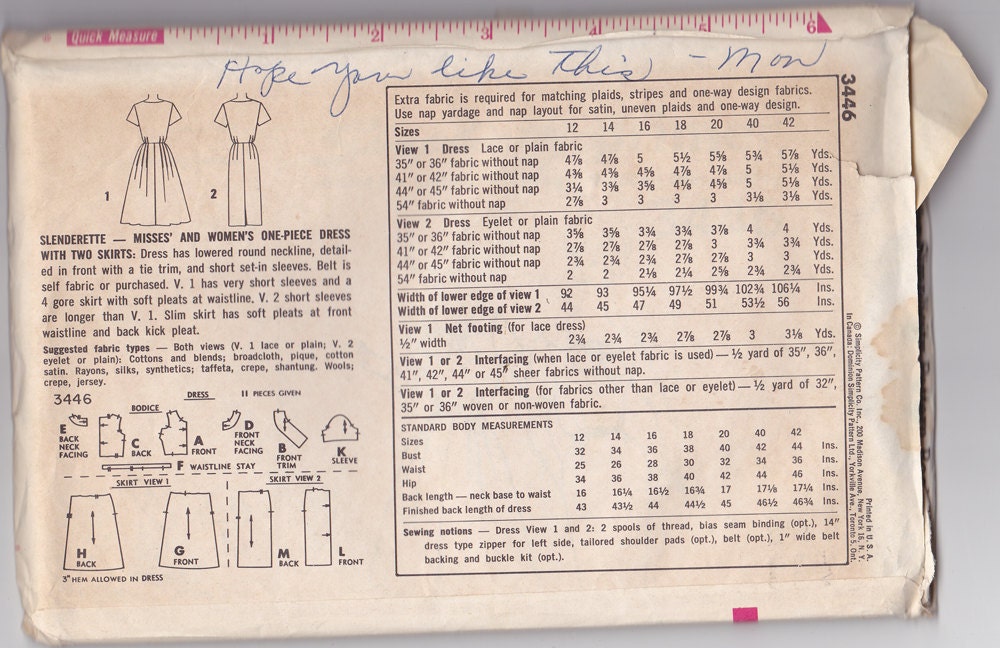 Quick Measure 1 2 3 4 5 6
Hope you like this — Mom
3446
1 2
SLENDERETTE — MISSES' AND WOMEN'S ONE-PIECE DRESS
WITH TWO SKIRTS: Dress has lowered round neckline, detail-
ed in front with a tie trim, and short set-in sleeves. Belt is
self fabric or purchased. V. 1 has very short sleeves and a
4 gore skirt with soft pleats at waistline. V. 2 short sleeves
are longer than V. 1. Slim skirt has soft pleats at front
waistline and back kick pleat.
Suggested fabric types — Both views (V. 1 lace or plain; V. 2
eyelet or plain): Cottons and blends; broadcloth, pique, cotton
satin. Rayons, silks, synthetics; taffeta, crepe, shantung. Wools;
crepe, jersey.
3446 DRESS 11 PIECES GIVEN
BODICE
E BACK NECK FACING
C BACK
A FRONT
D FRONT NECK FACING
B FRONT TRIM
K SLEEVE
F WAISTLINE STAY
SKIRT VIEW 1
SKIRT VIEW 2
H BACK
G FRONT
M BACK
L FRONT
3" HEM ALLOWED IN DRESS
Extra fabric is required for matching plaids, stripes and one-way design fabrics.
Use nap yardage and nap layout for satin, uneven plaids and one-way design.
Sizes 12 14 16 18 20 40 42
View 1 Dress Lace or plain fabric
35" or 36" fabric without nap 4⅞ 4⅞ 5 5½ 5⅝ 5¾ 5⅞ Yds.
41" or 42" fabric without nap 4⅜ 4⅜ 4⅝ 4⅞ 4⅞ 5 5⅛ Yds.
44" or 45" fabric without nap 3¼ 3⅜ 3⅝ 4⅛ 4⅝ 5 5⅛ Yds.
54" fabric without nap 2⅞ 3 3 3 3 3⅛ 3⅛ Yds.
View 2 Dress Eyelet or plain fabric
35" or 36" fabric without nap 3⅝ 3⅝ 3¾ 3¾ 3⅞ 4 4 Yds.
41" or 42" fabric without nap 2⅞ 2⅞ 2⅞ 2⅞ 3 3¾ 3¾ Yds.
44" or 45" fabric without nap 2¾ 2¾ 2¾ 2⅞ 2⅞ 3 3 Yds.
54" fabric without nap 2 2 2⅛ 2¼ 2⅝ 2¾ 2¾ Yds.
Width of lower edge of view 1 92 93 95¼ 97½ 99¾ 102¾ 106¼ Ins.
Width of lower edge of view 2 44 45 47 49 51 53½ 56 Ins.
View 1 Net footing (for lace dress)
½" width 2¾ 2¾ 2¾ 2⅞ 2⅞ 3 3⅛ Yds.
View 1 or 2 Interfacing (when lace or eyelet fabric is used) — ½ yard of 35", 36",
41", 42", 44" or 45" sheer fabrics without nap.
View 1 or 2 Interfacing (for fabrics other than lace or eyelet) — ½ yard of 32",
35" or 36" woven or non-woven fabric.
STANDARD BODY MEASUREMENTS
Sizes 12 14 16 18 20 40 42
Bust 32 34 36 38 40 42 44 Ins.
Waist 25 26 28 30 32 34 36 Ins.
Hip 34 36 38 40 42 44 46 Ins.
Back length — neck base to waist 16 16¼ 16½ 16¾ 17 17⅛ 17¼ Ins.
Finished back length of dress 43 43½ 44 44½ 45 46½ 46¾ Ins.
Sewing notions — Dress View 1 and 2: 2 spools of thread, bias seam binding (opt.), 14"
dress type zipper for left side, tailored shoulder pads (opt.), belt (opt.), 1" wide belt
backing and buckle kit (opt.).
© Simplicity Pattern Co. Inc., 200 Madison Avenue, New York 16, N. Y.
In Canada: Dominion Simplicity Pattern Ltd., Yorkville Ave., Toronto 5, Ont.
Printed in U. S. A.